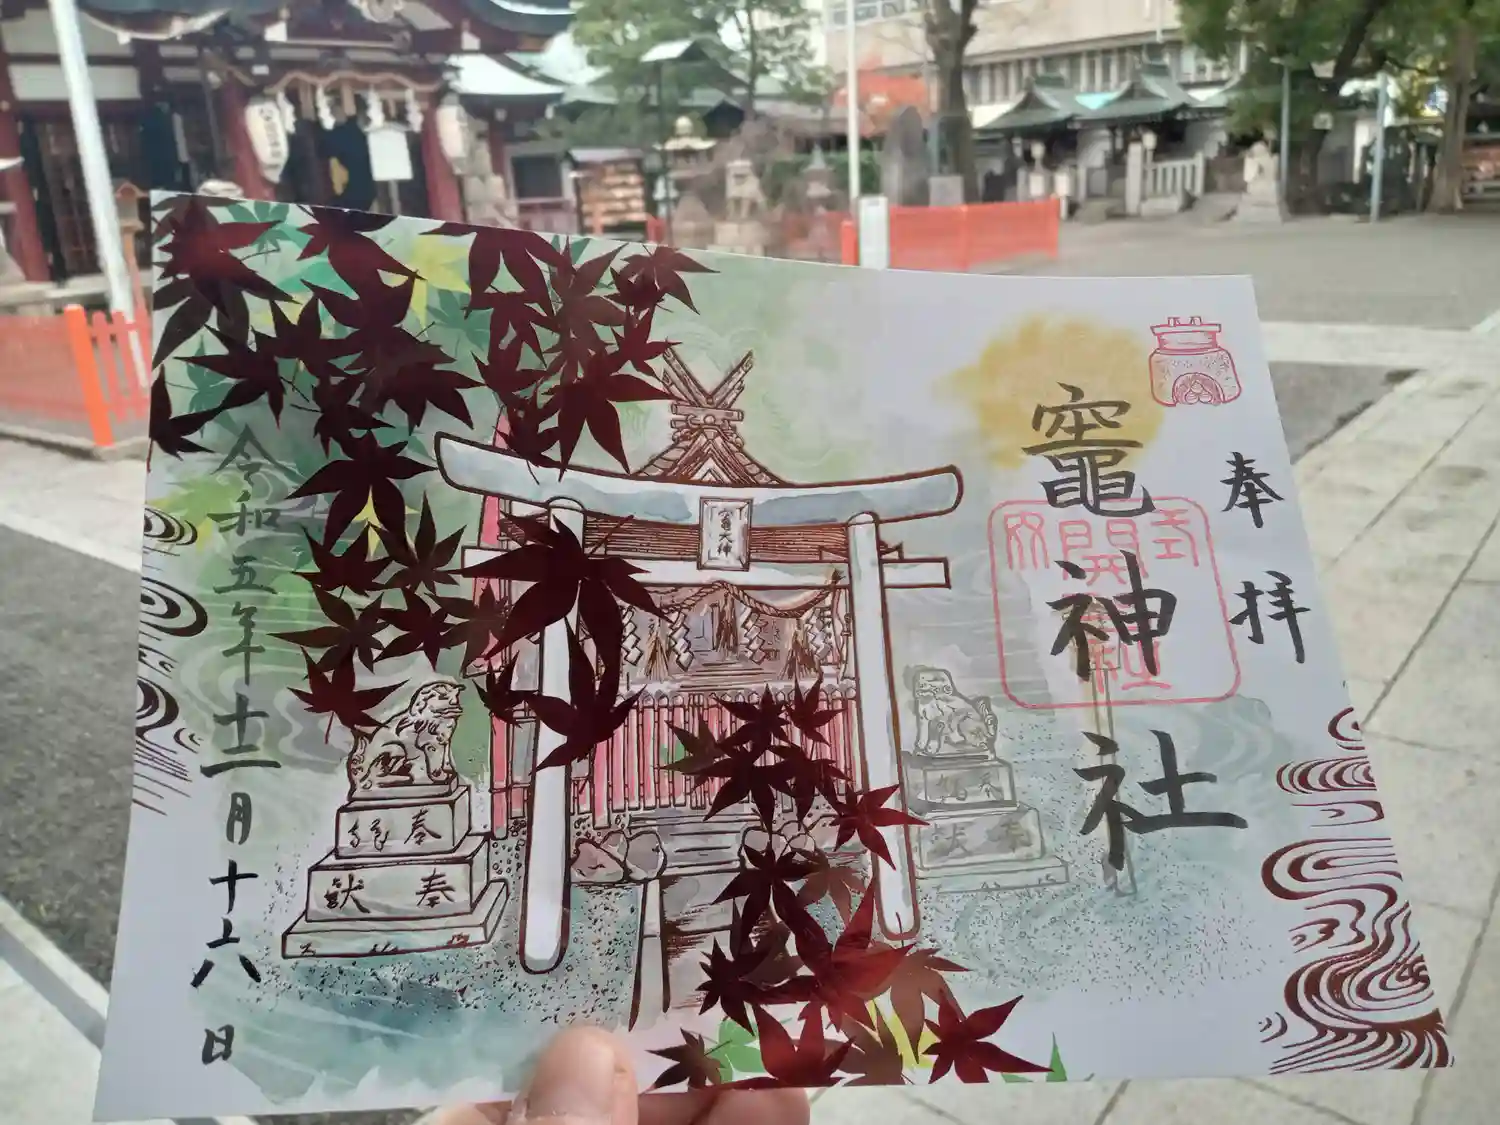 奉拝
竈神社
竈大神
令和五年十二月十六日
奉
献
奉
献